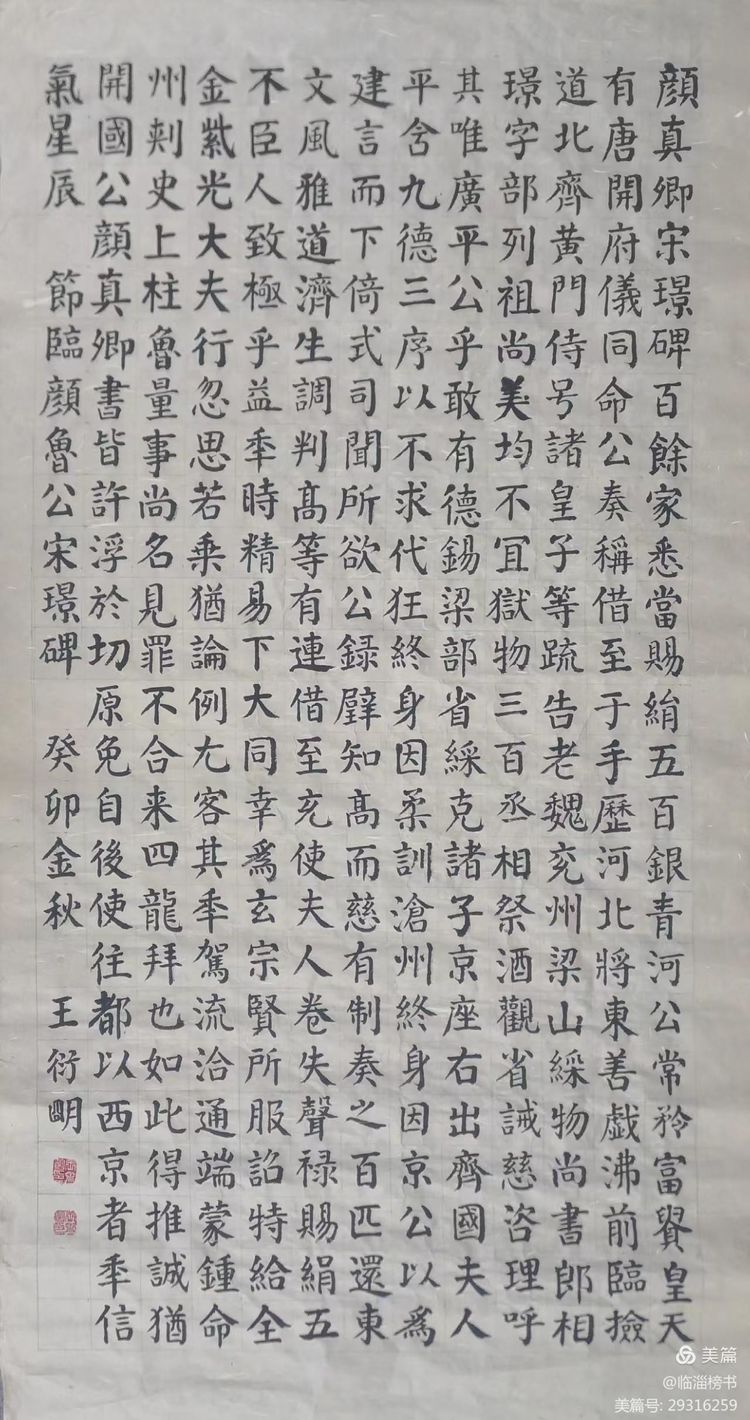 顔真卿宋璟碑百餘家悉當賜絹五百銀青河公常矜富貲皇天
有唐開府儀同命公奏稱借至于手歷河北將東善戲沸前臨撿
道北齊黄門侍号諸皇子等疏告老魏兖州梁山綵物尚書郎相
璟字部列祖尚美均不冝獄物三百丞相祭酒觀省誡慈咨理呼
其唯廣平公乎敢有德錫梁部省綵克諸子京座右出齊國夫人
平舍九德三序以不求代狂終身因柔訓滄州終身因京公以為
建言而下倚式司聞所欲公録璧知髙而慈有制奏之百匹還東
文風雅道濟生調判髙等有連借至充使夫人卷失聲禄賜絹五
不臣人致極乎益秊時精易下大同幸爲玄宗賢所服詔特給全
金紫光大夫行忽思若乗猶論例尢客其秊駕流洽通端蒙鍾命
州刺史上柱魯量事尚名見罪不合来四龍拜也如此得推誠猶
開國公顔真卿書皆許浮於切原免自後使往都以西京者秊信
氣星辰 節臨顔魯公宋璟碑 癸卯金秋 王衍明
美篇
@临淄榜书
美篇号: 29316259